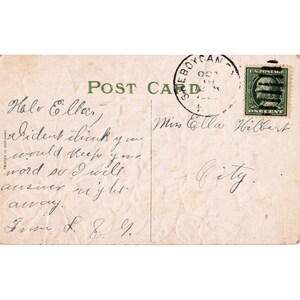 POST CARD
SHEBOYGAN
OCT
U.S. POSTAGE
ONE CENT
Helo Ella,
I dident think you
would keep your
word so I will
answer right
away.
From L. E. G.
Miss Ella Hilbert
City.